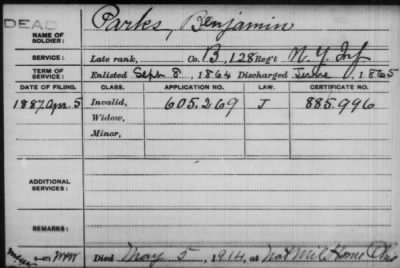 DEAD
NAME OF SOLDIER: Parks, Benjamin
SERVICE: Late rank, Co. B, 128 Reg't N.Y. Inf
TERM OF SERVICE: Enlisted Sept 8, 1864 Discharged June, 1865
DATE OF FILING. CLASS. APPLICATION NO. LAW. CERTIFICATE NO.
1887 Apr. 5 Invalid, 605.269 J 885.996
Widow,
Minor,
ADDITIONAL SERVICES:
REMARKS:
Died May 5, 1914, at Nat Mil Home